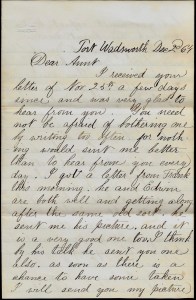 Fort Wadsworth Dec 2nd 64
Dear Aunt
I received your
letter of Nov 25th a few days
since and was very glad to
hear from you. You need
not be afraid of bothering me
by writing too often, for nothing
would suit me better
than to hear from you every
day. I got a letter from Frank
this morning. he and Edwin
are both well and getting along
after the same old sort he
sent me his picture, and it
is a very good one too. I think
by his talk he sent you one
also. as soon as there is a
chance to have some taken
I will send you my picture